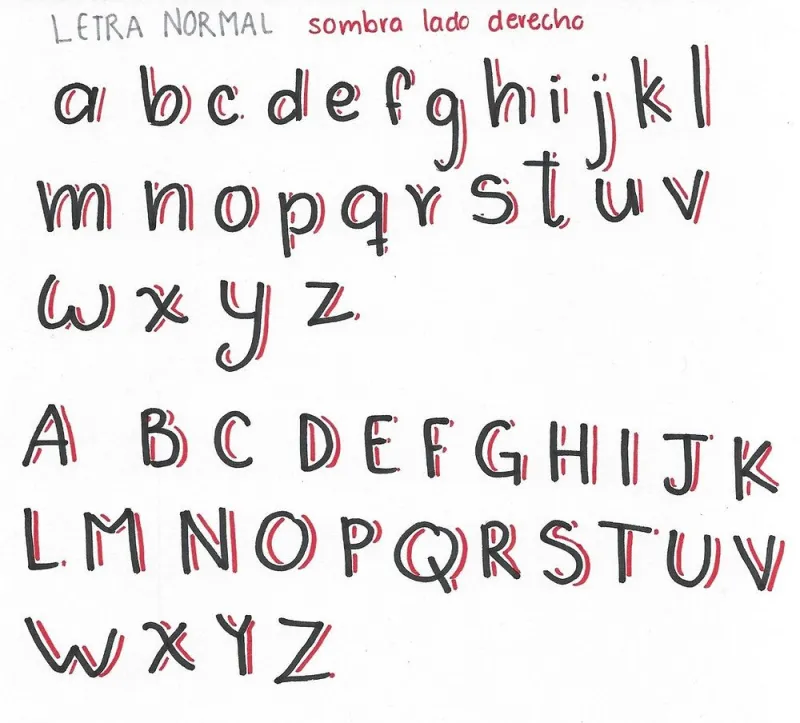 LETRA NORMAL sombra lado derecho
a b c d e f g h i j k l
m n o p q r s t u v
w x y z
A B C D E F G H I J K
L M N O P Q R S T U V
W X Y Z